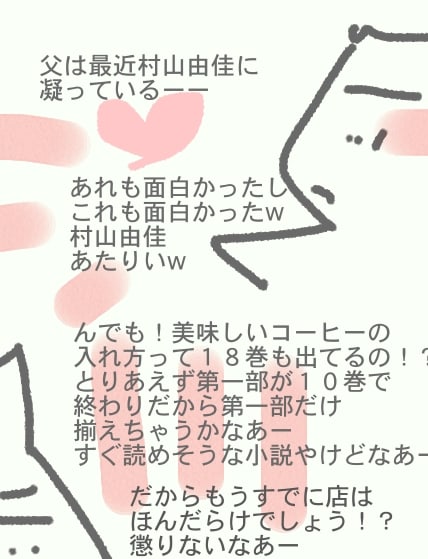 父は最近村山由佳に
凝っているーー
あれも面白かったし
これも面白かったw
村山由佳
あたりいw
んでも！美味しいコーヒーの
入れ方って１８巻も出てるの！？
とりあえず第一部が１０巻で
終わりだから第一部だけ
揃えちゃうかなあー
すぐ読めそうな小説やけどなあー
だからもうすでに店は
ほんだらけでしょう！？
懲りないなあー